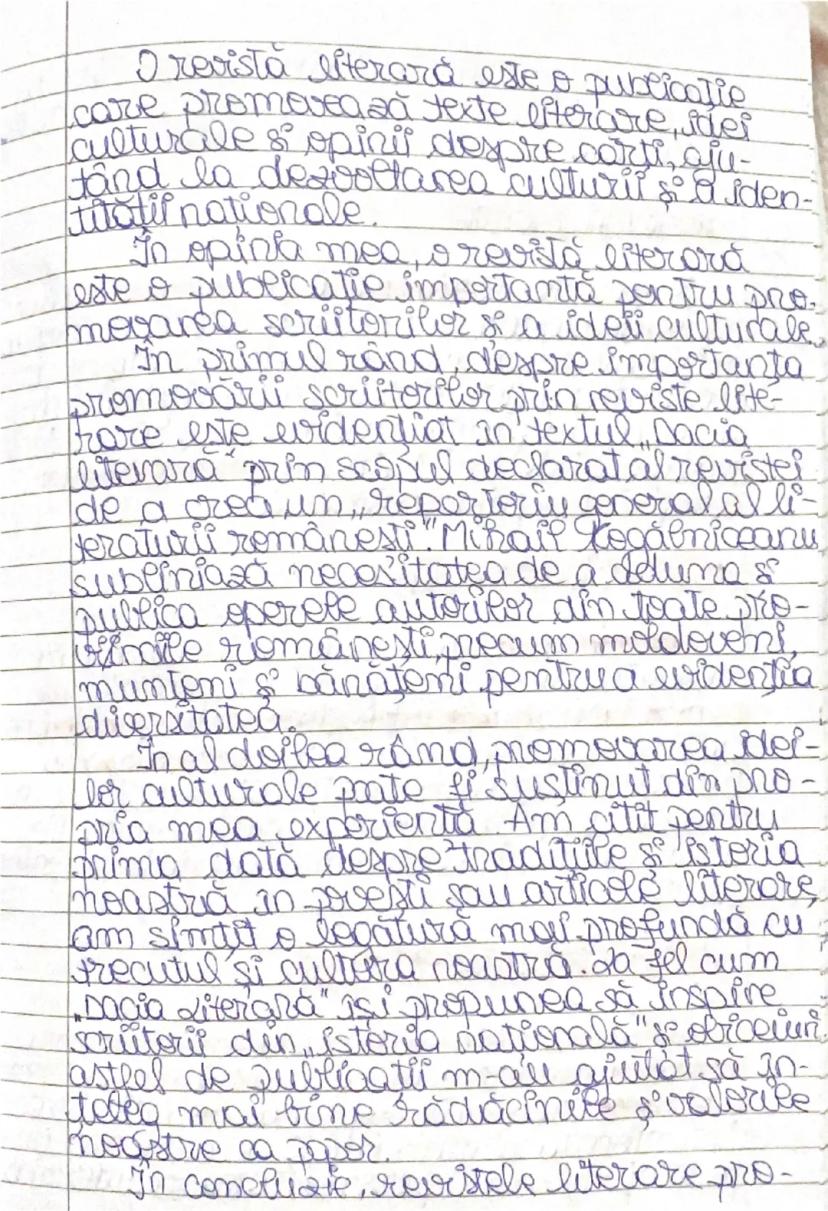 O revistă literară este o publicație
care promovează texte literare, idei
culturale și opinii despre cărți, aju-
tând la dezvoltarea culturii și a iden-
tității naționale.
În opinia mea, o revistă literară
este o publicație importantă pentru pro-
movarea scriitorilor și a ideii culturale.
În primul rând, despre importanța
promovării scriitorilor prin reviste lite-
rare este evidențiat in textul „Dacia
literară" prin scopul declarat al revistei
de a crea un „repertoriu general al li-
teraturii românești". Mihail Kogălniceanu
subliniază necesitatea de a aduna și
publica operele autorilor din toate pro-
vinciile românești, precum moldoveni,
munteni și bănățeni pentru a evidenția
diversitatea.
În al doilea rând, promovarea idei-
lor culturale poate fi susținut din pro-
pria mea experiență. Am citit pentru
prima dată despre tradițiile și istoria
noastră in povești sau articole literare,
am simțit o legătură mai profundă cu
trecutul și cultura noastră. La fel cum
„Dacia Literară" își propunea să inspire
scriitorii din „istoria națională" și obiceiuri
astfel de publicații m-au ajutat să in-
țeleg mai bine rădăcinile și valorile
noastre ca popor.
În concluzie, revistele literare pro-